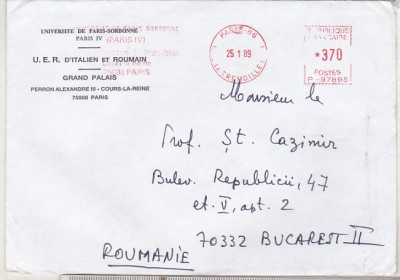 UNIVERSITE DE PARIS-SORBONNE
PARIS IV
U. E. R. D'ITALIEN ET ROUMAIN
GRAND PALAIS
PERRON ALEXANDRE III - COURS-LA-REINE
75008 PARIS
SORBONNE
(PARIS IV)
75008 PARIS
PARIS-86
25 1 89
LA TREMOILLE
REPUBLIQUE
FRANCAISE
*370
POSTES
P-97895
Monsieur le
Prof. Șt. Cazimir
Bulev. Republicii, 47
et. V, apt. 2
70332 BUCAREST II
ROUMANIE